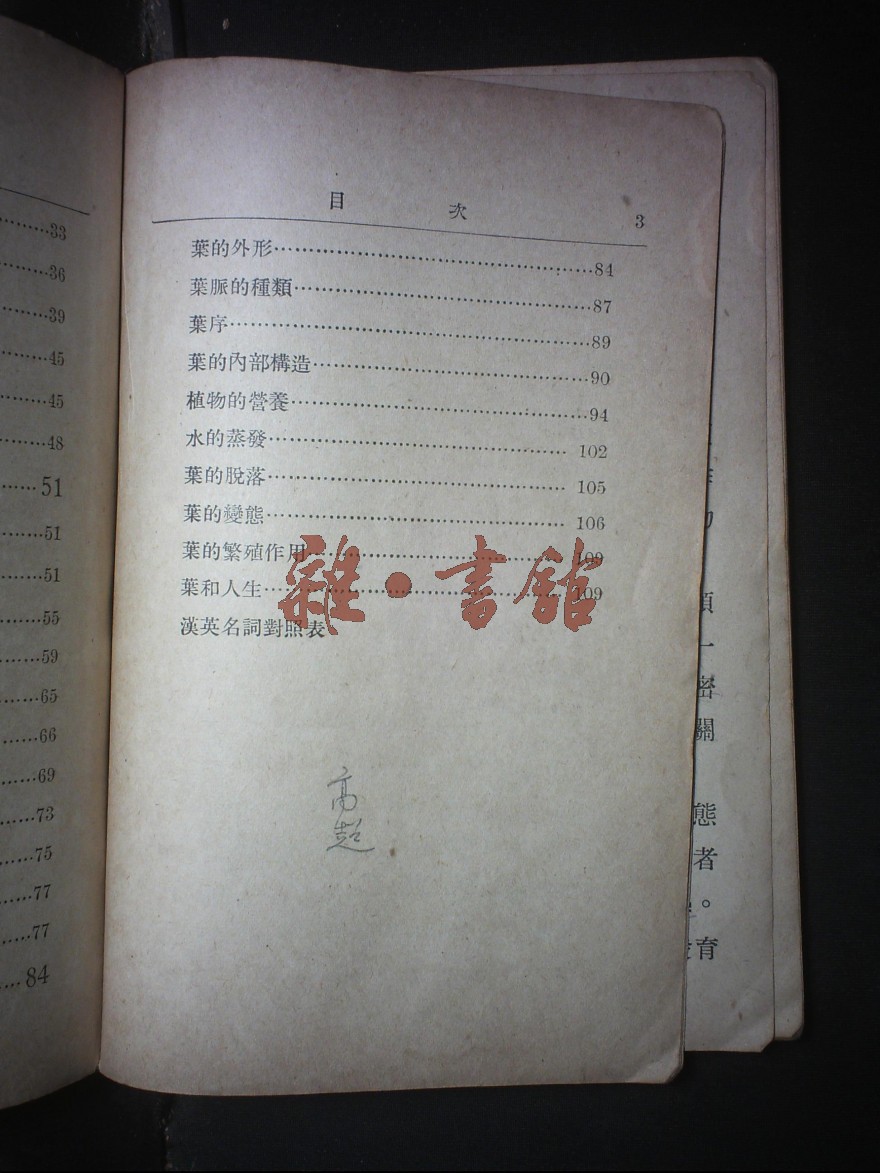 33
36
39
45
45
48
51
51
51
55
59
65
66
69
73
75
77
77
84
目 次 3
葉的外形………………………………84
葉脈的種類……………………………87
葉序……………………………………89
葉的內部構造…………………………90
植物的營養……………………………94
水的蒸發……………………………102
葉的脫落……………………………105
葉的變態……………………………106
葉的繁殖作用………………………109
葉和人生……………………………109
漢英名詞對照表
雜·書館
高超
類一密關
態者。育